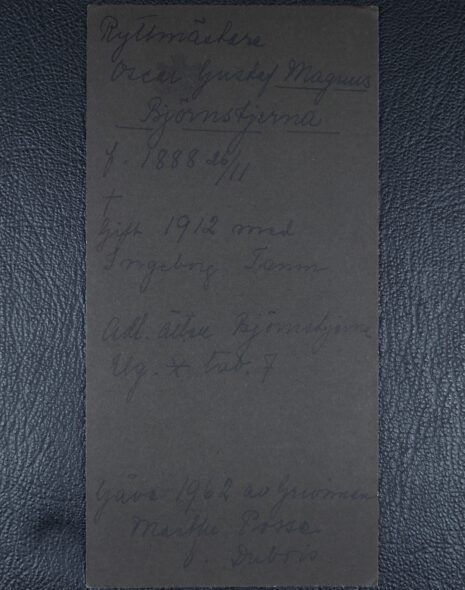 Ryttmästare
Oscar Gustaf Magnus
Björnstjerna
f. 1888 26/11
†
Gift 1912 med
Ingeborg Tamm
Adl. ätten Björnstjerna
Elg. + tab. 7
Gåva 1962 av Grevinnan
Marthe Posse
f. Dubois